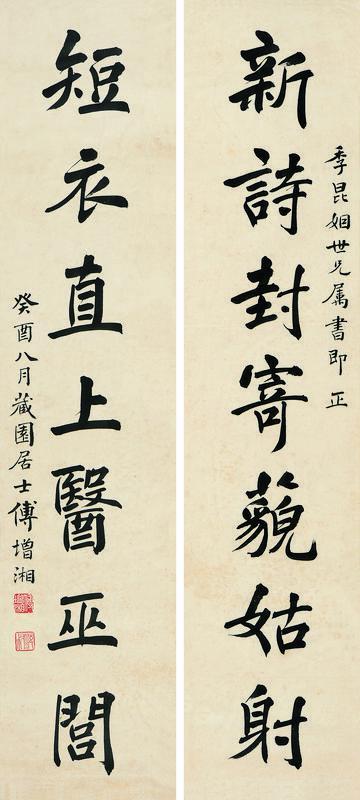 季昆姻世兄属書即正
新詩封寄藐姑射
短衣直上醫巫閭
癸酉八月藏園居士傅增湘